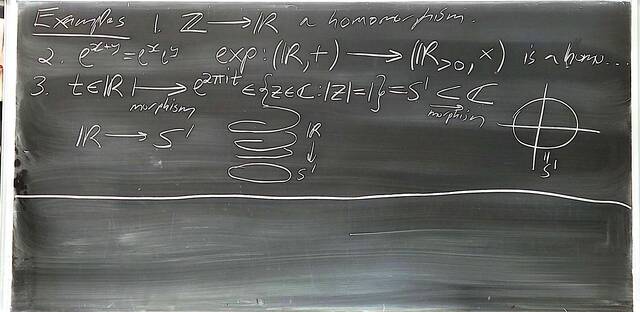 Examples 1. ℤ → ℝ a homomorphism.
2. e^{x+y} = e^x e^y exp : (ℝ, +) → (ℝ_{>0}, ×) is a homo...
3. t ∈ ℝ ↦ e^{2πit} ∈ {z ∈ ℂ : |z| = 1} = S¹ ⊆ ℂ
morphism morphism
ℝ → S¹
ℝ
↓
S¹
=
S¹